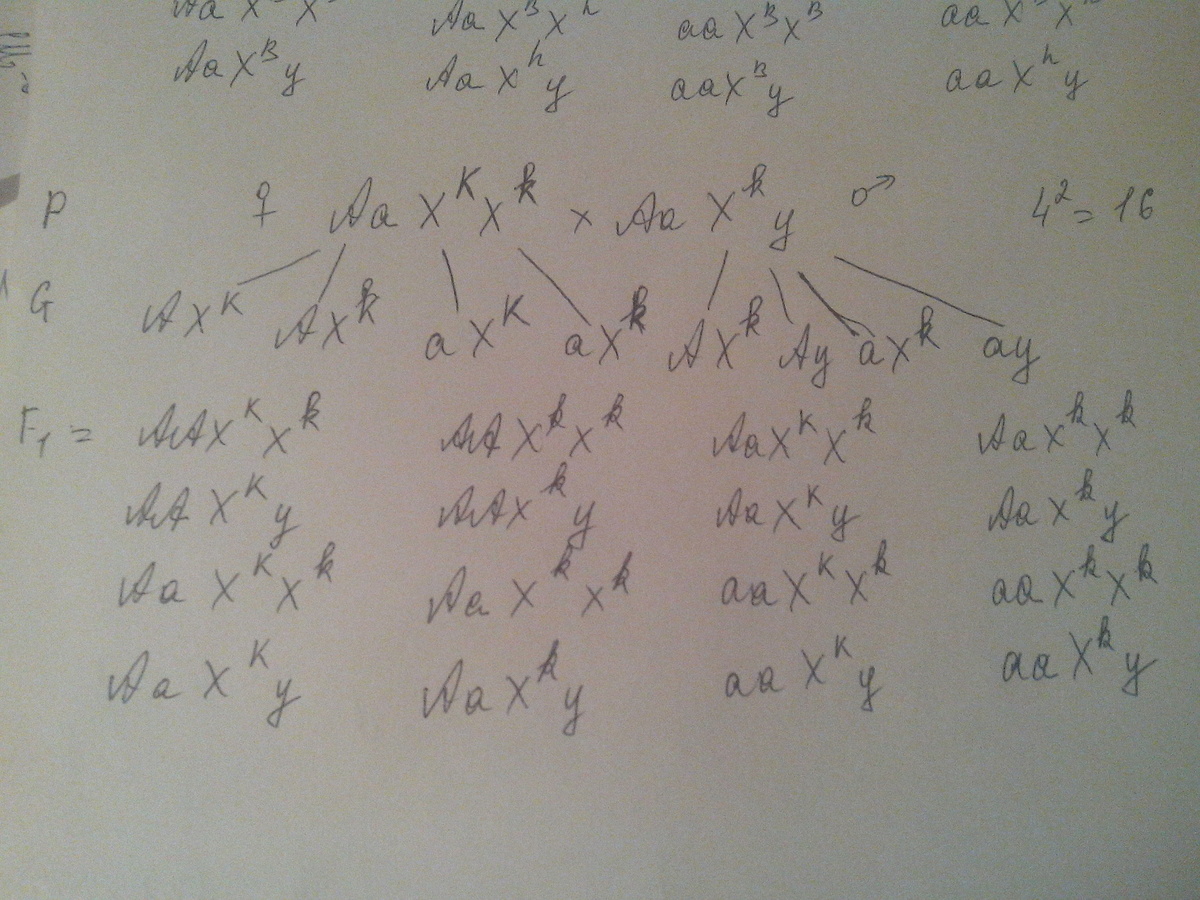 Aa X^B X
Aa X^B X^h
aa X^B X^B
aa X^B X
Aa X^B y
Aa X^h y
aa X^B y
aa X^h y
P ♀ Aa X^K X^k × Aa X^k y ♂ 4² = 16
G A X^K A X^k a X^K a X^k A X^k Ay a X^k ay
F₁ = AA X^K X^k AA X^k X^k Aa X^K X^k Aa X^k X^k
AA X^K y AA X^k y Aa X^K y Aa X^k y
Aa X^K X^k Aa X^k X^k aa X^K X^k aa X^k X^k
Aa X^K y Aa X^k y aa X^K y aa X^k y